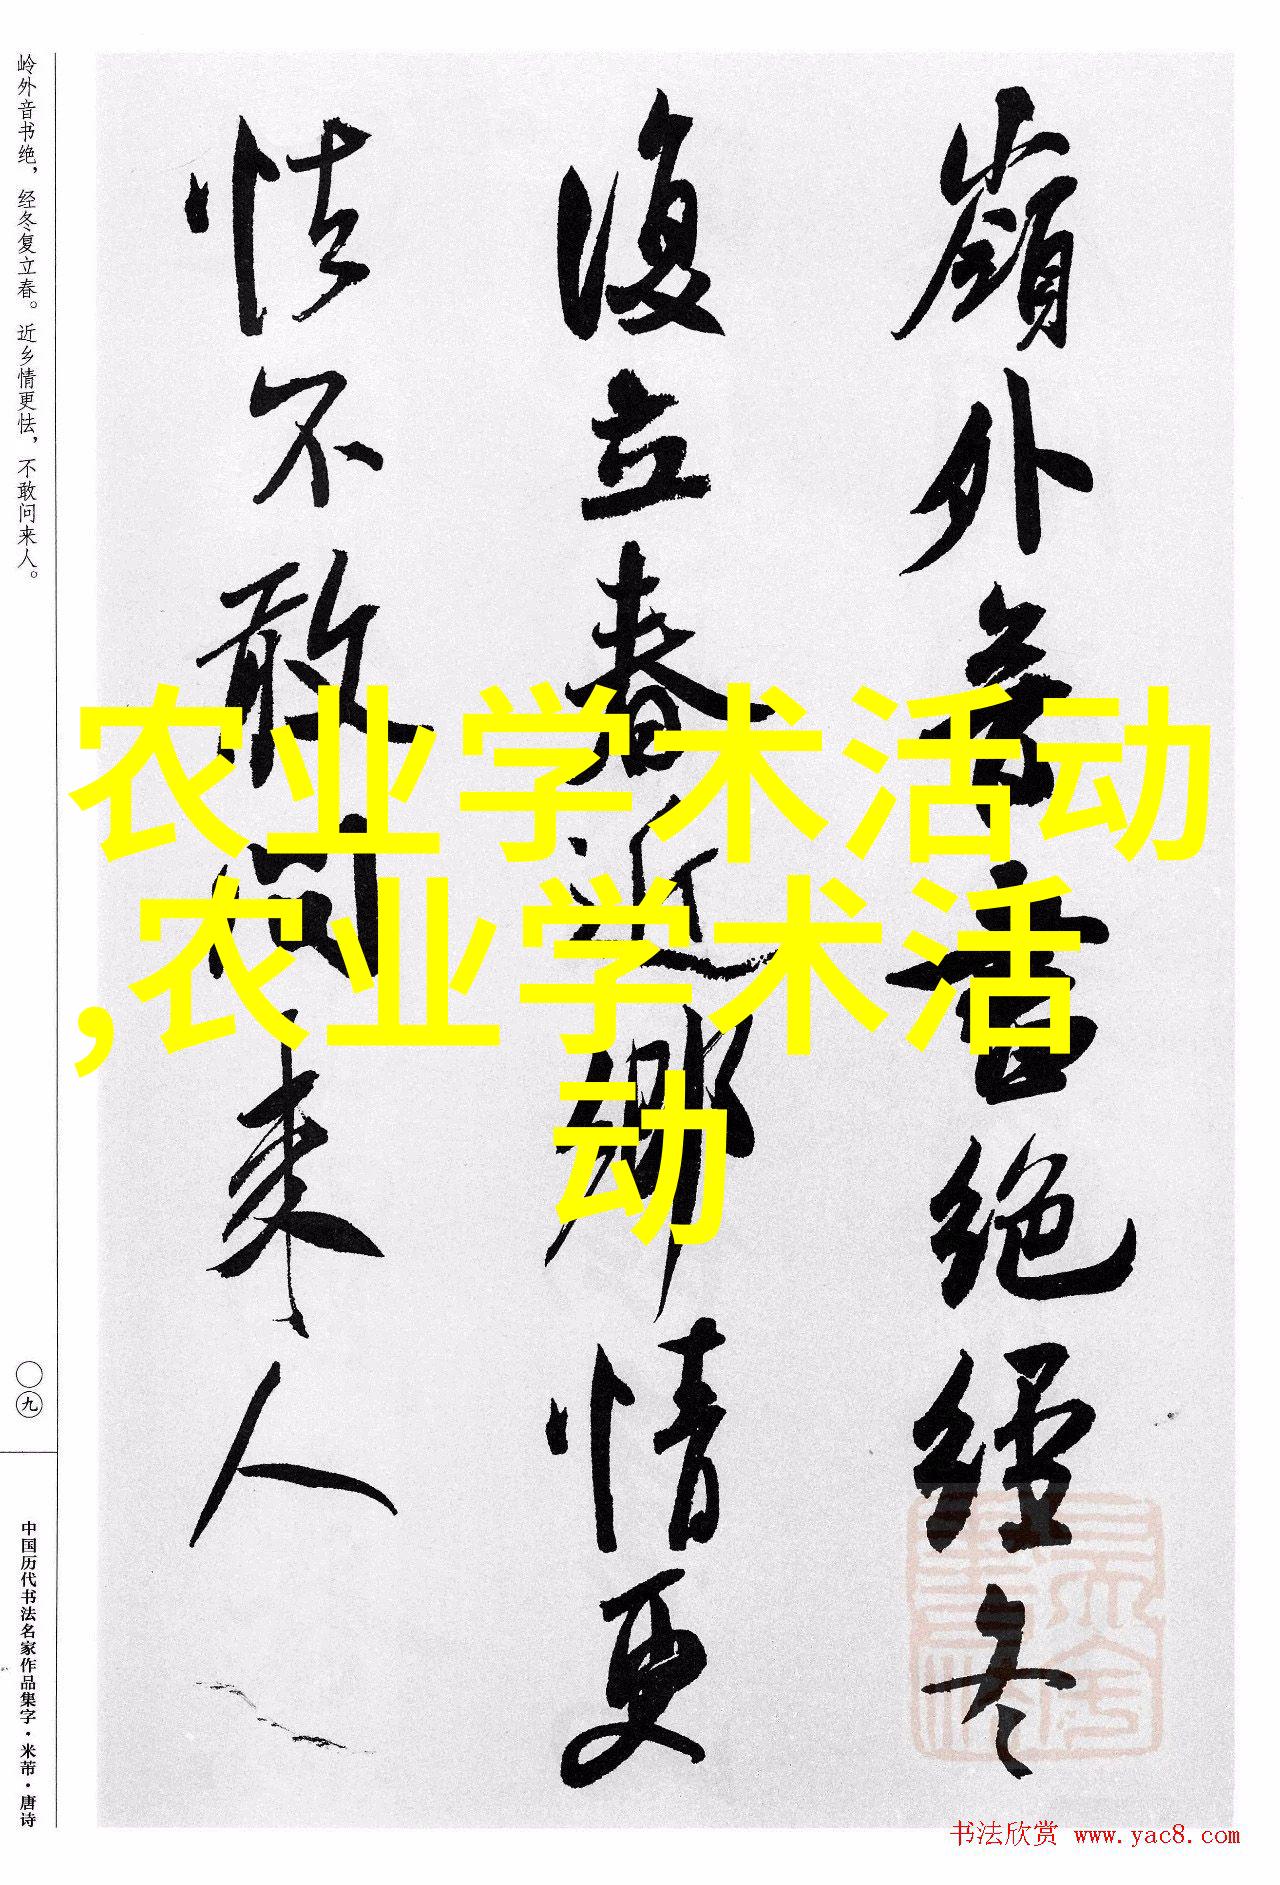 岭外音书绝，经冬复立春。近乡情更怯，不敢问来人。
嶺外音書绝經冬
復立春近鄉情更
怯不敢问来人
农业学术活动
,农业学术活
动
〇九
中国历代书法名家作品集字·米芾·唐诗
书法欣赏 www.yac8.com